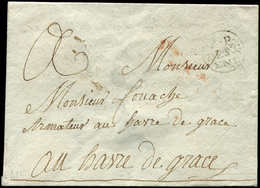 Monsieur
Monsieur fouache
Armateur aux havre de grace
au havre de grace